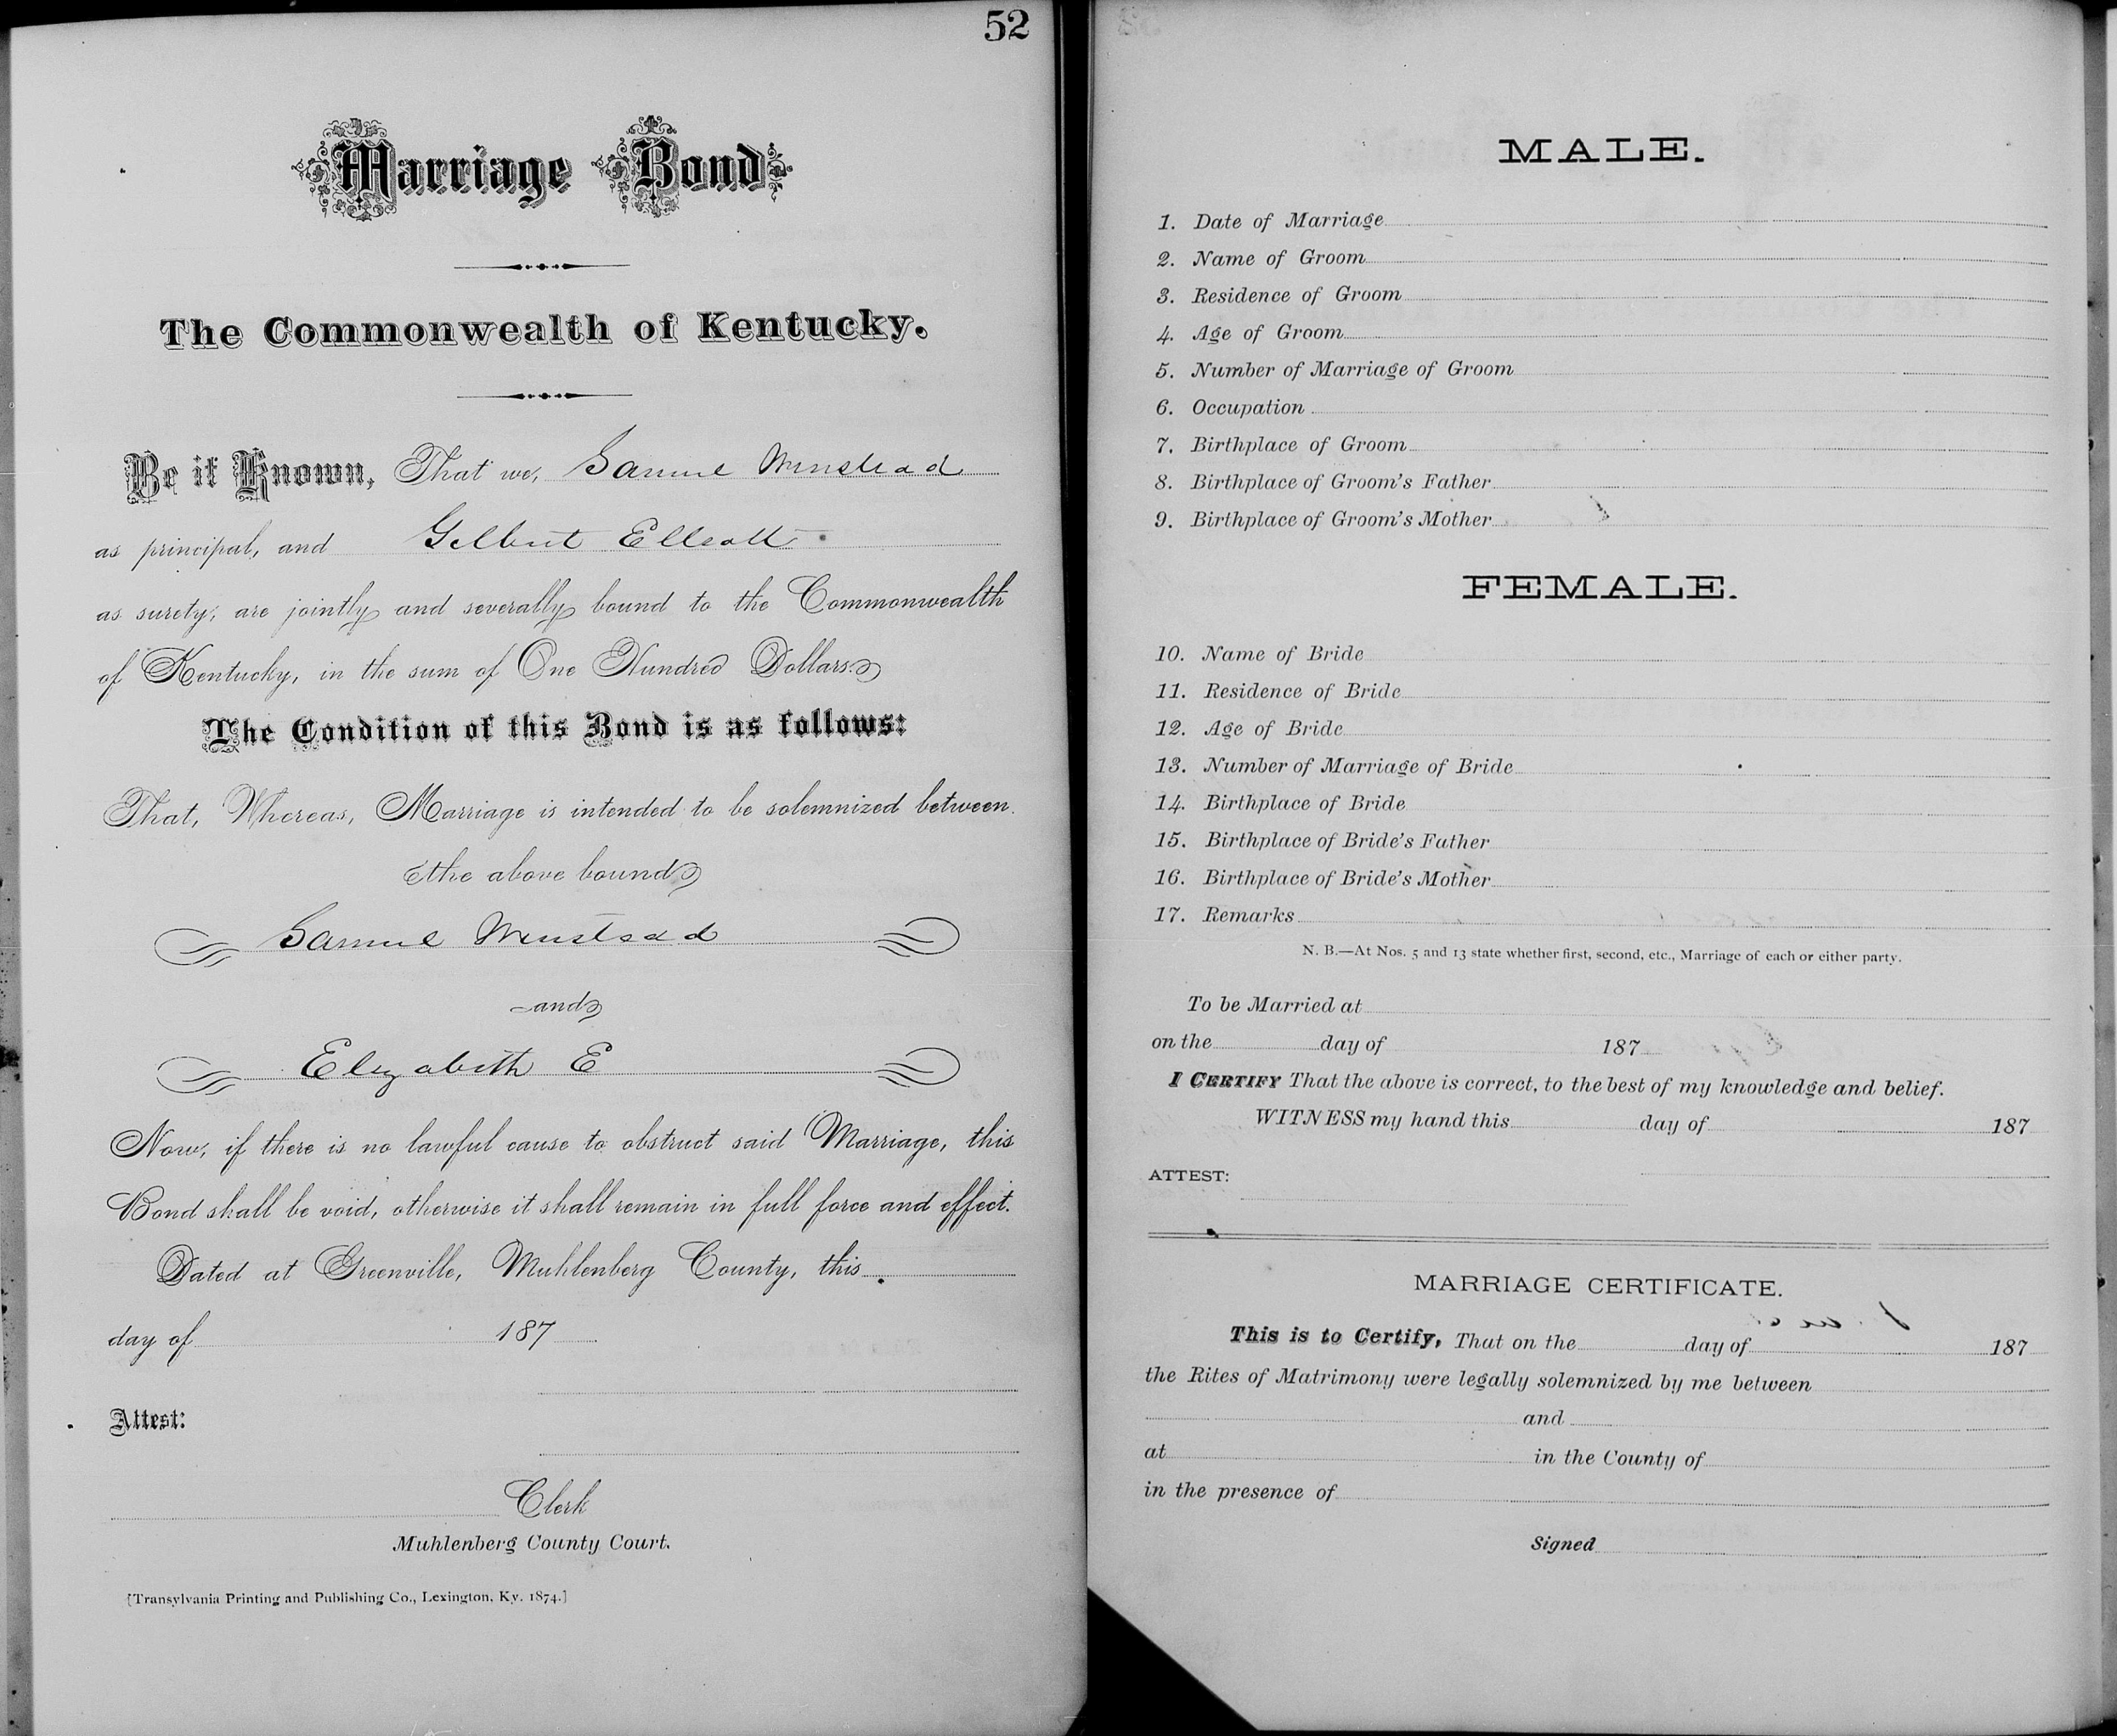 52
Marriage Bond
The Commonwealth of Kentucky.
Be it Known, That we, Samuel Winstead
as principal, and Gilbert Ellcott
as surety, are jointly and severally bound to the Commonwealth
of Kentucky, in the sum of One Hundred Dollars.
The Condition of this Bond is as follows:
That, Whereas, Marriage is intended to be solemnized between
the above bound
Samuel Winstead
and
Elizabeth E
Now, if there is no lawful cause to obstruct said Marriage, this
Bond shall be void, otherwise it shall remain in full force and effect.
Dated at Greenville, Muhlenberg County, this
day of 187
Attest:
Clerk
Muhlenberg County Court.
[Transylvania Printing and Publishing Co., Lexington, Ky. 1874.]
MALE.
1. Date of Marriage
2. Name of Groom
3. Residence of Groom
4. Age of Groom
5. Number of Marriage of Groom
6. Occupation
7. Birthplace of Groom
8. Birthplace of Groom's Father
9. Birthplace of Groom's Mother
FEMALE.
10. Name of Bride
11. Residence of Bride
12. Age of Bride
13. Number of Marriage of Bride
14. Birthplace of Bride
15. Birthplace of Bride's Father
16. Birthplace of Bride's Mother
17. Remarks
N. B.—At Nos. 5 and 13 state whether first, second, etc., Marriage of each or either party.
To be Married at
on the day of 187
I CERTIFY That the above is correct, to the best of my knowledge and belief.
WITNESS my hand this day of 187
ATTEST:
MARRIAGE CERTIFICATE.
This is to Certify, That on the day of 187
the Rites of Matrimony were legally solemnized by me between
and
at in the County of
in the presence of
Signed